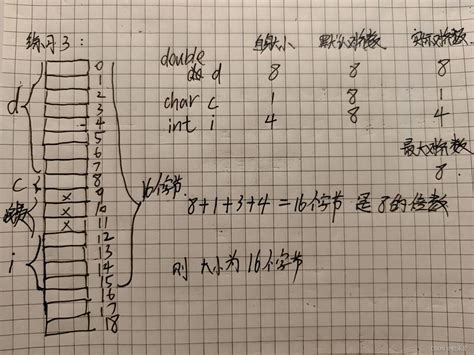 练习3:
自身大小 默认对齐数 实际对齐数
double d 8 8 8
char c 1 8 1
int i 4 8 4
最大对齐数
8
16个字节
8+1+3+4=16个字节 是8的倍数
则 大小为16个字节
d
c
i
0
1
2
3
4
5
6
7
8
9
10
11
12
13
14
15
16
17
18
x
x
x